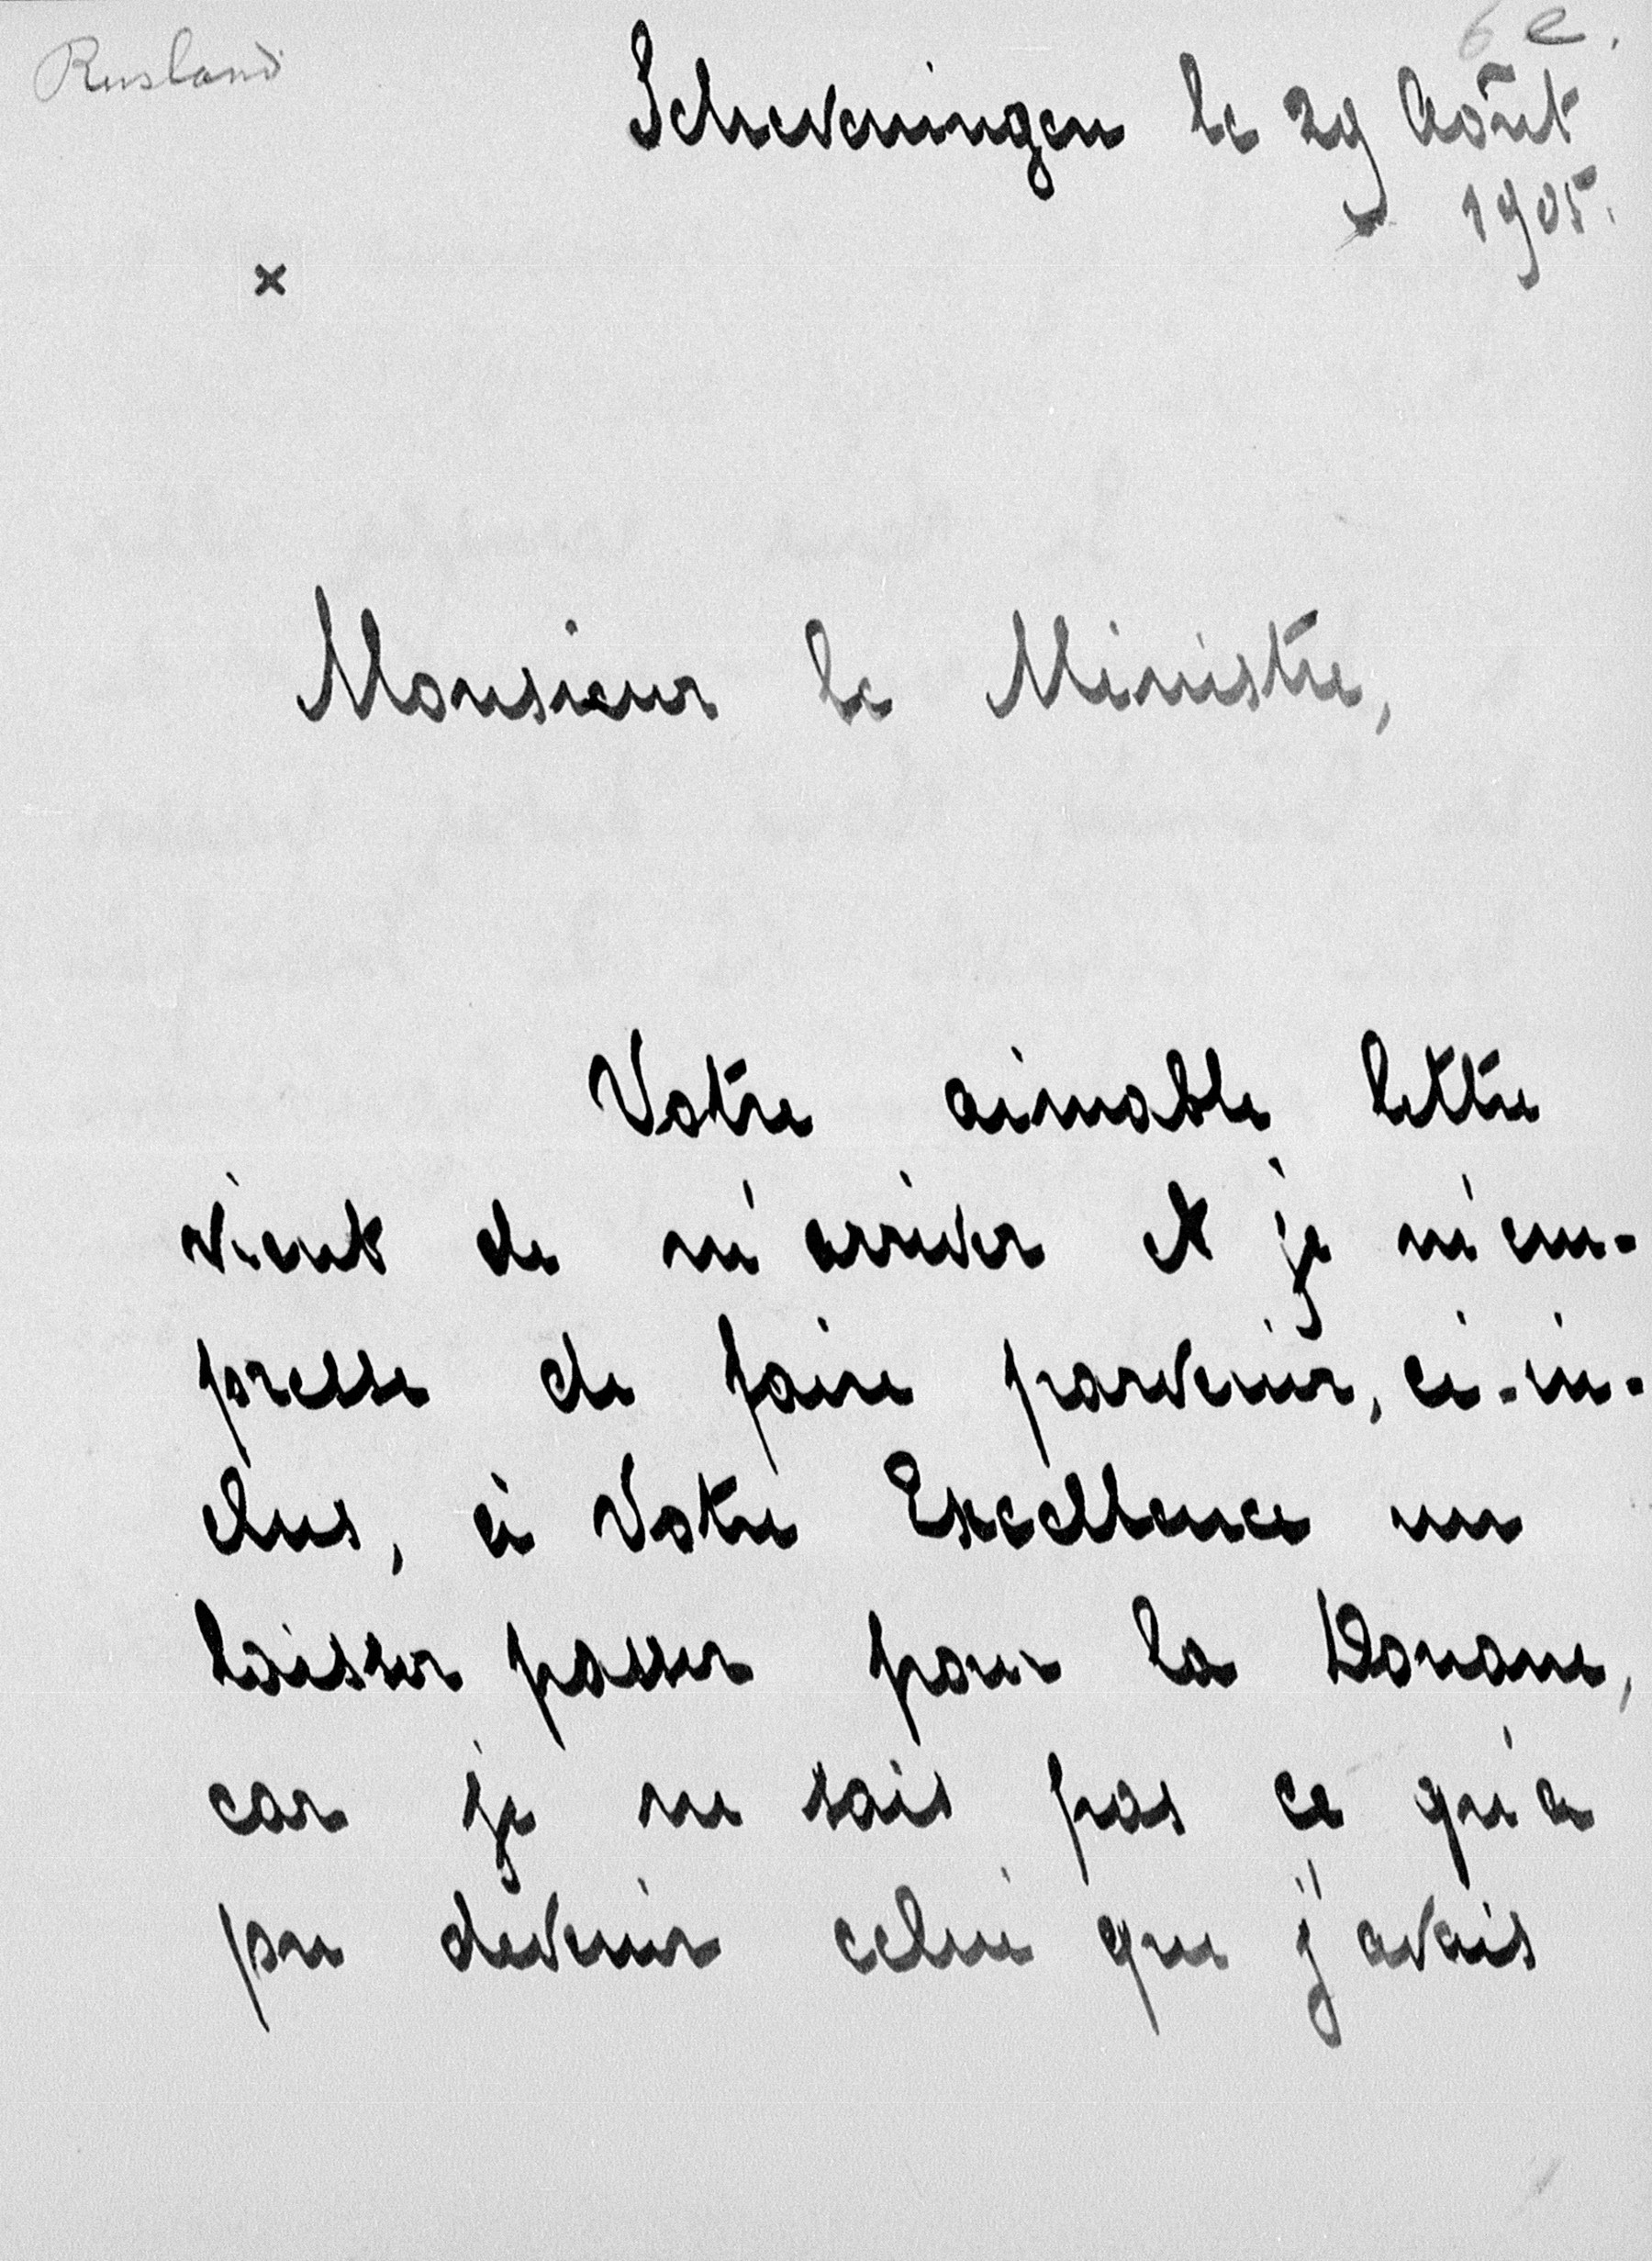 Rusland
6 e.
Scheveningen le 29 Août
1905.
x
Monsieur le Ministre,
Votre aimable lettre
vient de m'arriver et je m'em-
presse de faire parvenir, ci-in-
clus, à Votre Excellence un
laisser passer pour la Douane,
car je ne sais pas ce qu'a
pu devenir celui que j'avais